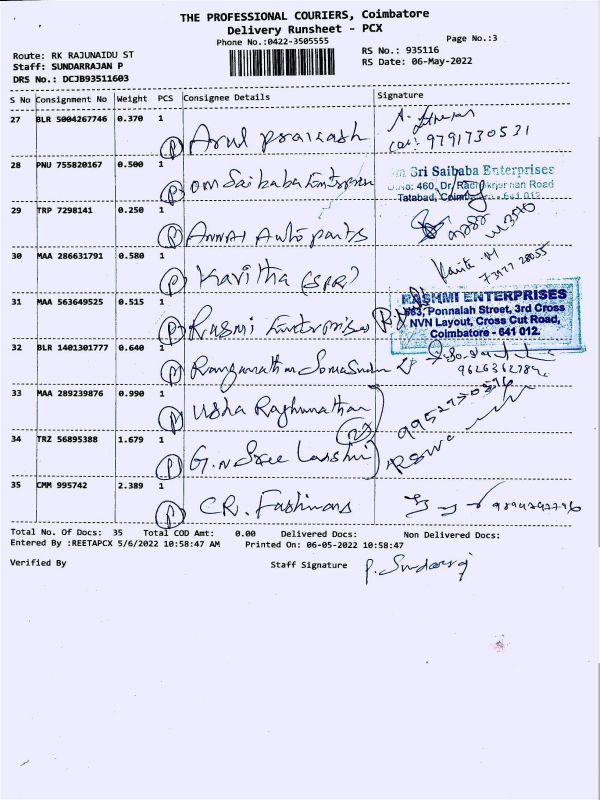 THE PROFESSIONAL COURIERS, Coimbatore
Delivery Runsheet - PCX
Phone No.:0422-3505555
Page No.:3
Route: RK RAJUNAIDU ST
RS No.: 935116
Staff: SUNDARRAJAN P
RS Date: 06-May-2022
DRS No.: DCJB93511603
S No Consignment No Weight PCS Consignee Details Signature
27 BLR 5004267746 0.370 1
P Arul prakash 9791730531
28 PNU 755820167 0.500 1 Sri Saibaba Enterprises
D.No: 460, Dr. Radhakrishnan Road
P om Sai baba Enterprises Tatabad, Coimbatore - 641 012.
29 TRP 7298141 0.250 1
P Annai Auto parts
30 MAA 286631791 0.580 1
P Kavitha (SPR)
31 MAA 563649525 0.515 1 RASHMI ENTERPRISES
663, Ponnaiah Street, 3rd Cross
P Rasmi Enterprises NVN Layout, Cross Cut Road,
Coimbatore - 641 012.
32 BLR 1401301777 0.640 1
P Ranganathan
33 MAA 289239876 0.990 1
P Usha Raghunathan
34 TRZ 56895388 1.679 1
P G.N Sree Lakshmi
35 CMM 995742 2.389 1
P CR. Fashinans
Total No. Of Docs: 35 Total COD Amt: 0.00 Delivered Docs: Non Delivered Docs:
Entered By :REETAPCX 5/6/2022 10:58:47 AM Printed On: 06-05-2022 10:58:47
Verified By Staff Signature P. Sundarraj